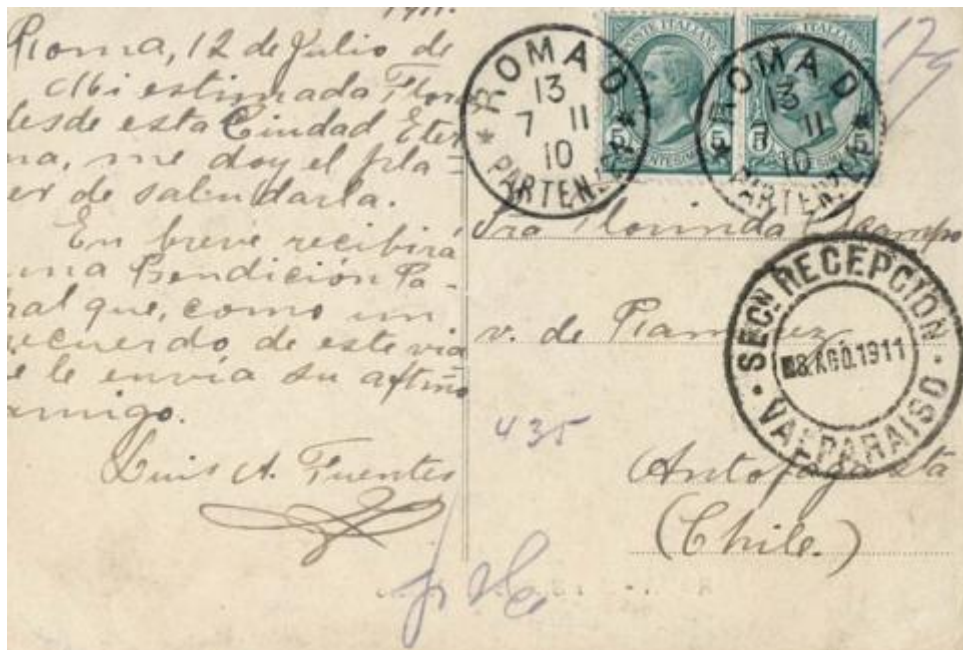 1911.
Roma, 12 de Julio de
Mi estimada Flora
desde esta Ciudad Eter
na, me doy el pla-
er de saludarla.
En breve recibirá
una Bendición Pa-
al que, como un
recuerdo de este via
e le envía su aftmo
amigo.
Luis A. Fuentes
ROMA D
13
7 11
10
* PARTENZA *
POSTE ITALIANE
5 CENTESIMI 5
POSTE ITALIANE
5 CENTESIMI 5
ROMA D
13
7 11
10
PARTENZA *
179
Sra Florinda Ocampo
v. de Ramirez
SECN RECEPCIÓN
28 AGO.1911
· VALPARAISO ·
435
Antofagasta
(Chile.)